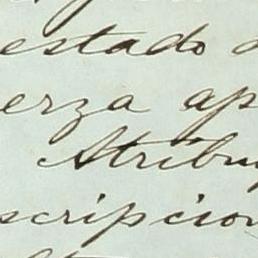 estado
erza ap
Atribu
scripcion